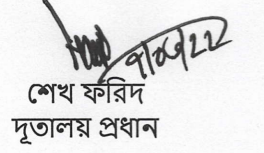 শেখ ফরিদ
দূতালয় প্রধান